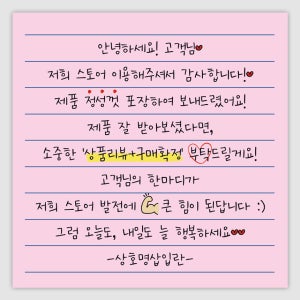 안녕하세요! 고객님♥
저희 스토어 이용해주셔서 감사합니다!♥
제품 정성껏 포장하여 보내드렸어요!
제품 잘 받아보셨다면,
소중한 '상품리뷰+구매확정' 부탁드릴게요!
고객님의 한마디가
저희 스토어 발전에 💪 큰 힘이 된답니다 :)
그럼 오늘도, 내일도 늘 행복하세요♥♥
-상호명삽입란-